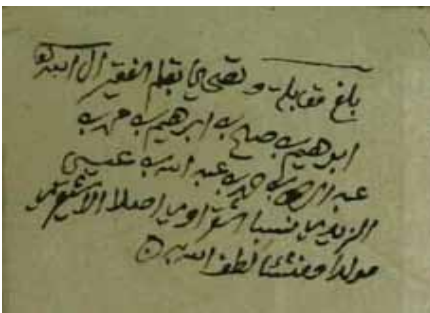 بلغ مقابلة وتصحيحا بقلم الفقير الى الله
ابراهيم بن صالح بن ابراهيم بن محمد بن
عبد الرحمن بن حمد بن عبد الله بن عيسى
نسبا اصلا
مولدا ومنشئا لطف الله به